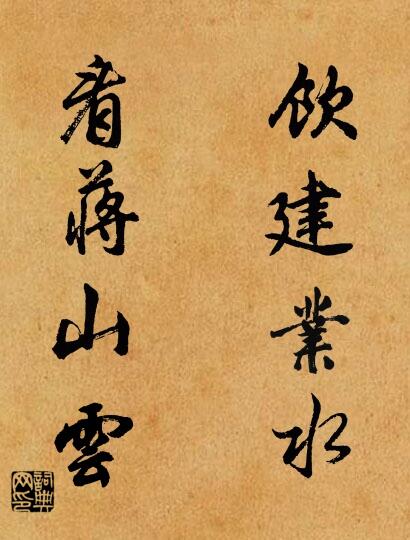 飲建業水
看蔣山雲
詞典网印